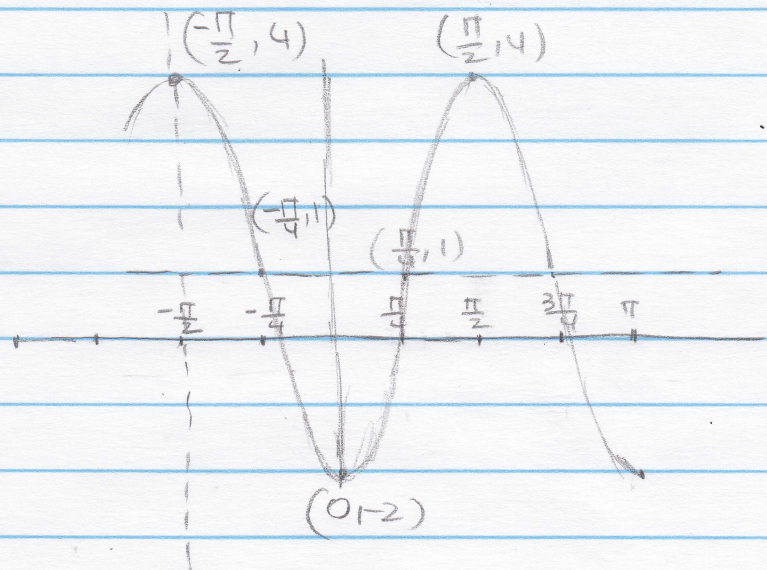 (-π/2, 4) (π/2, 4)
(-π/4, 1)
(π/4, 1)
-π/2 -π/4 π/4 π/2 3π/4 π
(0,-2)